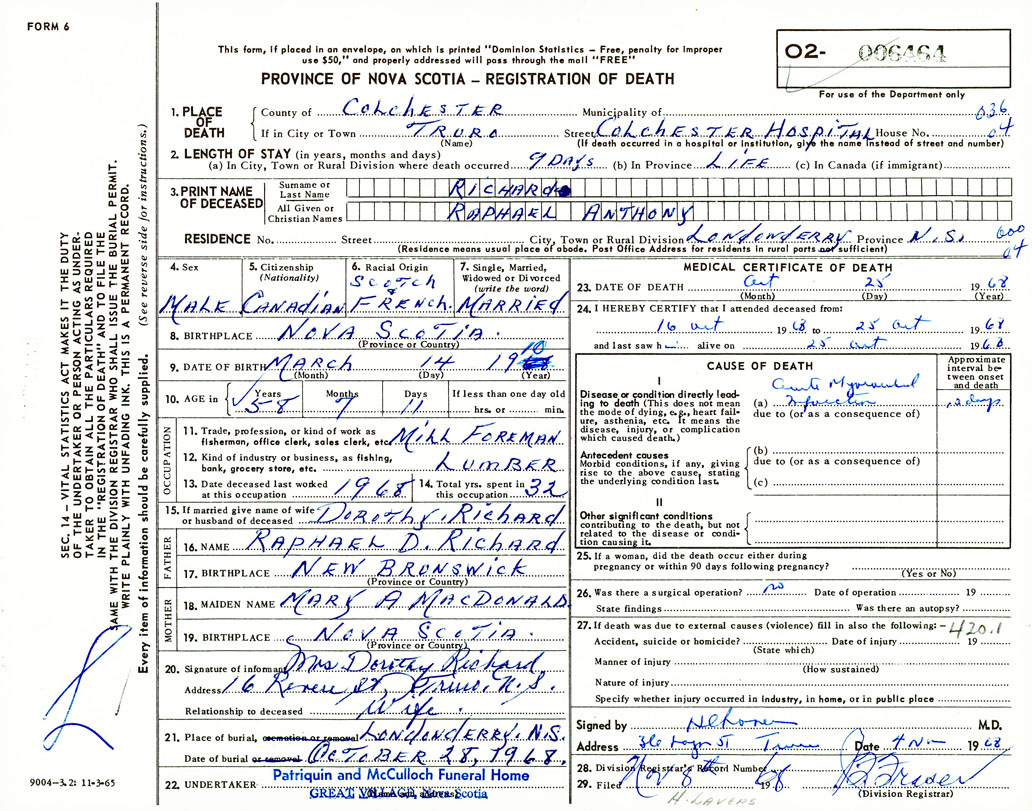 FORM 6
This form, if placed in an envelope, on which is printed "Dominion Statistics – Free, penalty for improper
use $50," and properly addressed will pass through the mail "FREE"
PROVINCE OF NOVA SCOTIA – REGISTRATION OF DEATH
02- 006464
For use of the Department only
SEC. 14 – VITAL STATISTICS ACT MAKES IT THE DUTY
OF THE UNDERTAKER OR PERSON ACTING AS UNDER-
TAKER TO OBTAIN ALL THE PARTICULARS REQUIRED
IN THE "REGISTRATION OF DEATH" AND TO FILE THE
SAME WITH THE DIVISION REGISTRAR WHO SHALL ISSUE THE BURIAL PERMIT.
WRITE PLAINLY WITH UNFADING INK. THIS IS A PERMANENT RECORD.
Every item of information should be carefully supplied. (See reverse side for instructions.)
1. PLACE OF DEATH
County of COLCHESTER Municipality of 036
If in City or Town TRURO Street COLCHESTER HOSPITAL House No. 04
(Name) (If death occurred in a hospital or institution, give the name instead of street and number)
2. LENGTH OF STAY (in years, months and days)
(a) In City, Town or Rural Division where death occurred 9 DAYS (b) In Province LIFE (c) In Canada (if immigrant)
3. PRINT NAME OF DECEASED
Surname or Last Name RICHARD
All Given or Christian Names RAPHAEL ANTHONY
RESIDENCE No. Street City, Town or Rural Division LONDONDERRY Province N.S. 000
(Residence means usual place of abode. Post Office Address for residents in rural parts not sufficient) 04
4. Sex MALE
5. Citizenship (Nationality) CANADIAN
6. Racial Origin SCOTCH FRENCH
7. Single, Married, Widowed or Divorced (write the word) MARRIED
8. BIRTHPLACE NOVA SCOTIA
(Province or Country)
9. DATE OF BIRTH MARCH 14 1910
(Month) (Day) (Year)
10. AGE in Years 58 Months 7 Days 11 If less than one day old hrs. or min.
OCCUPATION
11. Trade, profession, or kind of work as fisherman, office clerk, sales clerk, etc. MILL FOREMAN
12. Kind of industry or business, as fishing, bank, grocery store, etc. LUMBER
13. Date deceased last worked at this occupation 1968
14. Total yrs. spent in this occupation 32
15. If married give name of wife or husband of deceased DOROTHY. RICHARD
FATHER
16. NAME RAPHAEL D. RICHARD
17. BIRTHPLACE NEW BRUNSWICK
(Province or Country)
MOTHER
18. MAIDEN NAME MARY A MACDONALD
19. BIRTHPLACE NOVA SCOTIA.
(Province or Country)
20. Signature of informant Mrs Dorothy Richard
Address 16 St, Truro. N.S.
Relationship to deceased Wife.
21. Place of burial, cremation or removal LONDONDERRY. N.S.
Date of burial or removal OCTOBER 28, 1968.
22. UNDERTAKER Patriquin and McCulloch Funeral Home
GREAT VILLAGE, Nova Scotia
(Name and address)
9004-3.2: 11-3-65
MEDICAL CERTIFICATE OF DEATH
23. DATE OF DEATH Oct 25 1968
(Month) (Day) (Year)
24. I HEREBY CERTIFY that I attended deceased from:
16 Oct 1968 to 25 Oct 1968
and last saw him alive on 25 Oct 1968
CAUSE OF DEATH
Approximate interval between onset and death
I
Disease or condition directly leading to death (This does not mean the mode of dying, e.g., heart failure, asthenia, etc. It means the disease, injury, or complication which caused death.)
(a) Acute Myocardial Infarction days
due to (or as a consequence of)
Antecedent causes
Morbid conditions, if any, giving rise to the above cause, stating the underlying condition last.
(b)
due to (or as a consequence of)
(c)
II
Other significant conditions contributing to the death, but not related to the disease or condition causing it.
25. If a woman, did the death occur either during
pregnancy or within 90 days following pregnancy?
(Yes or No)
26. Was there a surgical operation? no Date of operation 19
State findings Was there an autopsy?
27. If death was due to external causes (violence) fill in also the following: – 420.1
Accident, suicide or homicide? Date of injury 19
(State which)
Manner of injury
(How sustained)
Nature of injury
Specify whether injury occurred in industry, in home, or in public place
Signed by M.D.
Address St Truro Date 4 Nov 1968
28. Division Registrar's Record Number
29. Filed Nov 8th 1968
(Division Registrar)
H. LAVERS